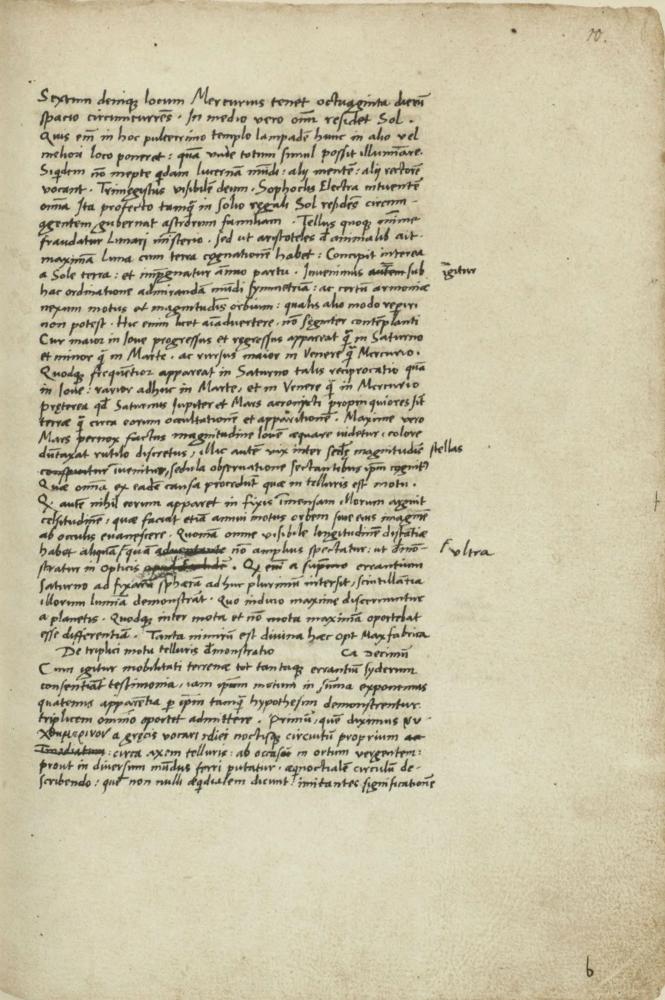 10.
Sextum deniq₃ locum Mercurius tenet octuaginta dierū
spacio circumcurrēs. In medio vero omī residet Sol.
Quis em̄ in hoc pulcerrimo templo lampadē hanc in alio vel
meliori loco poneret: quā vnde totum simul possit illumīare.
Siqdem nō inepte qdam lucernā mūdi: alij mentē: alij rectorē
vocant. Trimegistus visibilē deum. Sophoclis Electra intuentē
omīa. Ita profecto tamq̄ in solio regali Sol residēs circum
agentem gubernat astrorum familiam. Tellus quoq₃ minime
fraudatur Lunari ministerio. Sed ut aristoteles d̄ animalib ait.
maximā Luna cum terra cognationē habet: Concipit interea
a Sole terra: et impregnatur ānuo partu. Inuenimus autem sub igitur
hac ordinatione admirandā mūdi symmetriā: ac certū armoniæ
nexum motus et magnitudīs orbium: qualis alio modo reperiri
non potest. Hic enim licet aīaduertere. nō segniter contēplanti
Cur maior in Ioue progressus et regressus appareat q̄ in Saturno
et minor q̄ in Marte. ac rursus maior in Venere q̄ Mercurio.
Quodq₃ frequētior appareat in Saturno talis reciprocatio quā
in Ioue: rarior adhuc in Marte, et in Venere q̄ in Mercurio
præterea qd Saturnus Iupiter et Mars acronycti propinquiores sīt
terræ q̄ circa eorum occultationē et apparitionē. Maxime vero
Mars pernox factus magnitudine Iouē æquare uidetur: colore
dūtaxat rutilo discretus; illic autē vix inter scdē magnitudīs stellas
inuenitur, sedula obseruatione sectantibus
Quæ omīa ex eadē causa procedūt quæ in telluris est motu.
Q autē nihil eorum apparet in fixis immensam illorum arguit
celsitudinē, quæ faciat etiā annui motus orbem siue eius imaginē
ab oculis euanescere. Quoniā omne visibile longitudinē distātiæ
habet aliquā ultra quam nō amplius spectatur: ut dmō-
stratur in Opticis. Q em̄ a supremo errantium
Saturno ad fixarū sphæram adhuc plurimū intersit, scintillātia
illorum lumīa demonstrāt. Quo indicio maxime discernuntur
a planetis. Quodq₃ inter mota et nō mota maximā oportebat
esse differentiā. Tanta nimirū est diuina hæc Opt Max fabrica
De triplici motu telluris dmonstratio Ca decimū
Cum igitur mobilitati terrenæ tot tantaq₃ errantiū syderum
consentiāt testimonia, iam ipsum motum in sūma exponemus
quatenus apparētia p ipm tamq̄ hypothesim demonstrentur.
triplicem omnīo oportet admittere. Primū, quē diximus νυ-
χθημερινον a græcis vocari: diei noctisq₃ circuitū proprium
circa axem telluris: ab occasu in ortum vergentem:
prout in diuersum mūdus ferri putatur. æqnoctialē circulū de-
scribendo: quē non nulli æqdialem dicunt: imitantes significationē
b